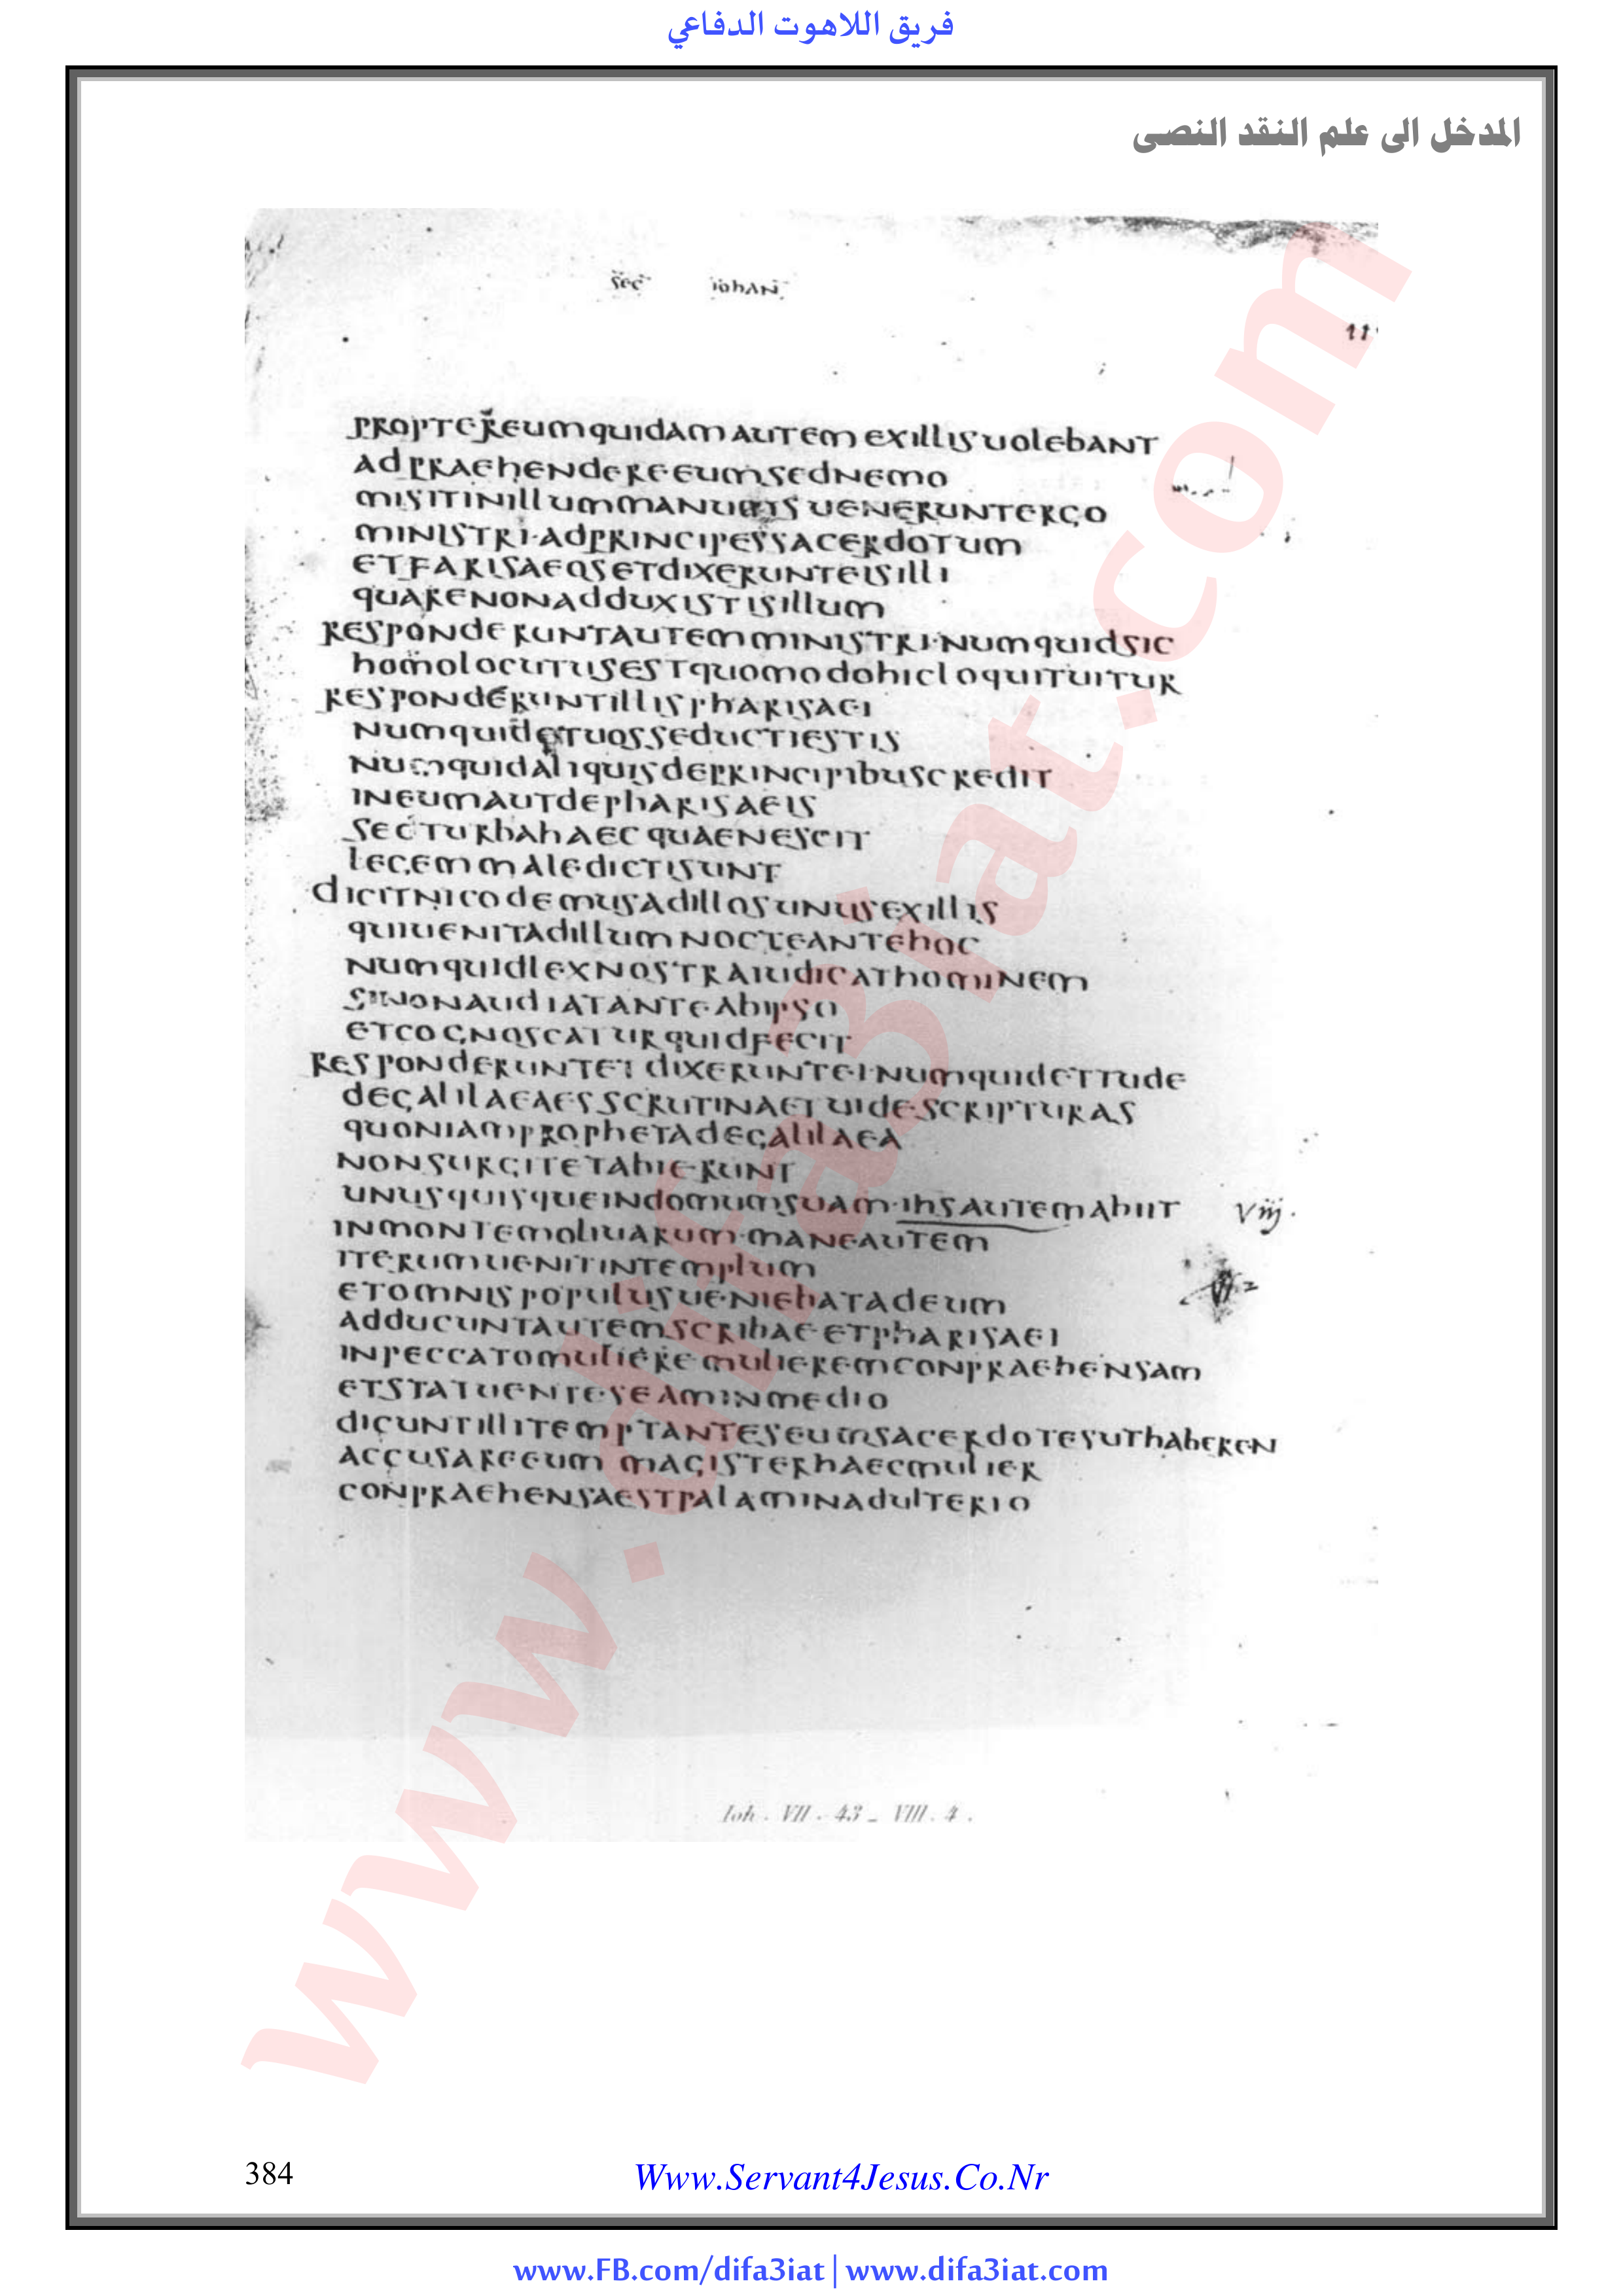 فريق اللاهوت الدفاعي
المدخل الى علم النقد النصى
sec iohan
11
PROPTEREUMQUIDAMAUTEMEXILLISUOLEBANT
ADPRAEHENDEREEUMSEDNEMO
MISITINILLUMMANUM UENERUNTERGO
MINISTRI·ADPRINCIPESSACERDOTUM
ETFARISAEOSETDIXERUNTEISILLI
QUARENONADDUXISTISILLUM
RESPONDERUNTAUTEMMINISTRI·NUMQUIDSIC
HOMOLOCUTUSESTQUOMODOHICLOQUITUITUR
RESPONDERUNTILLISPHARISAEI
NUMQUIDETUOSSEDUCTIESTIS
NUMQUIDALIQUISDEPRINCIPIBUSCREDIT
INEUMAUTDEPHARISAEIS
SECTURBAHAECQUAENESCIT
LEGEMMALEDICTISUNT
DICITNICODEMUSADILLOSUNUSEXILLIS
QUIUENITADILLUMNOCTEANTEHOC
NUMQUIDLEXNOSTRAIUDICATHOMINEM
SINONAUDIATANTEABIPSO
ETCOGNOSCATURQUIDFECIT
RESPONDERUNTET DIXERUNTEI·NUMQUIDETTUDE
DEGALILAEAESSCRUTINAETUIDESCRIPTURAS
QUONIAMPROPHETADEGALILAEA
NONSURGITETABIERUNT
UNUSQUISQUEINDOMUMSUAM·IHSAUTEMABIIT Viij.
INMONTEMOLIUARUM·MANEAUTEM
ITERUMUENITINTEMPLUM
ETOMNISPOPULUSUENIEBATADEUM
ADDUCUNTAUTEMSCRIBAEETPHARISAEI
INPECCATOMULIEREMULIEREMCONPRAEHENSAM
ETSTATUENTESEAMINMEDIO
DICUNTILLITEMPTANTESEUMSACERDOTESUTHABEREN
ACCUSAREEUM MAGISTERHAECMULIER
CONPRAEHENSAESTPALAMINADULTERIO
Ioh. VII. 43 _ VIII. 4.
www.difa3iat.com
384
Www.Servant4Jesus.Co.Nr
www.FB.com/difa3iat | www.difa3iat.com